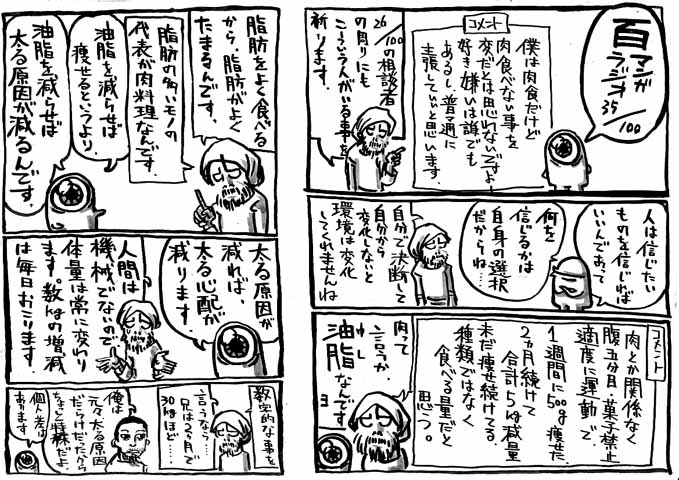 百
マンガ
ラジオ
35/100
コメント
僕は肉食だけど
肉食べない事を
変だとは思れないですよ
好き嫌いは誰でも
あるし、普通に
主張していいと思います。
26/100の相談者
の周りにも
こういう人がいる事を
祈ります。
人は信じたい
ものを信じれば
いいんであって
何を
信じるかは
自身の選択
だからね…
自分で決断して
自分から
変化しないと
環境は変化
してくれませんね
コメント
肉とか関係なく
腹五分目、菓子禁止
適度に運動で
1週間に500g痩せた
2ヵ月続けて
合計5kg減量
未だ痩せ続けてる。
種類ではなく
食べる量だと
思う。
肉って
言うか、
油脂なんですヨ
脂肪をよく食べる
から、脂肪がよく
たまるんです。
脂肪の多いモノの
代表が肉料理なんです。
油脂を減らせば
痩せるというより、
油脂を減らせば
太る原因が減るんです。
太る原因が
減れば、
太る心配が
減ります。
人間は
機械でないので
体量は常に変わり
ます。数kgの増減
は毎日おこります。
数字的な事を
言うなら…
兄は2ヵ月で
30kgほど…
俺は
元々太る原因
だらけだったから
ちょっと特殊だよ。
個人差は
あります